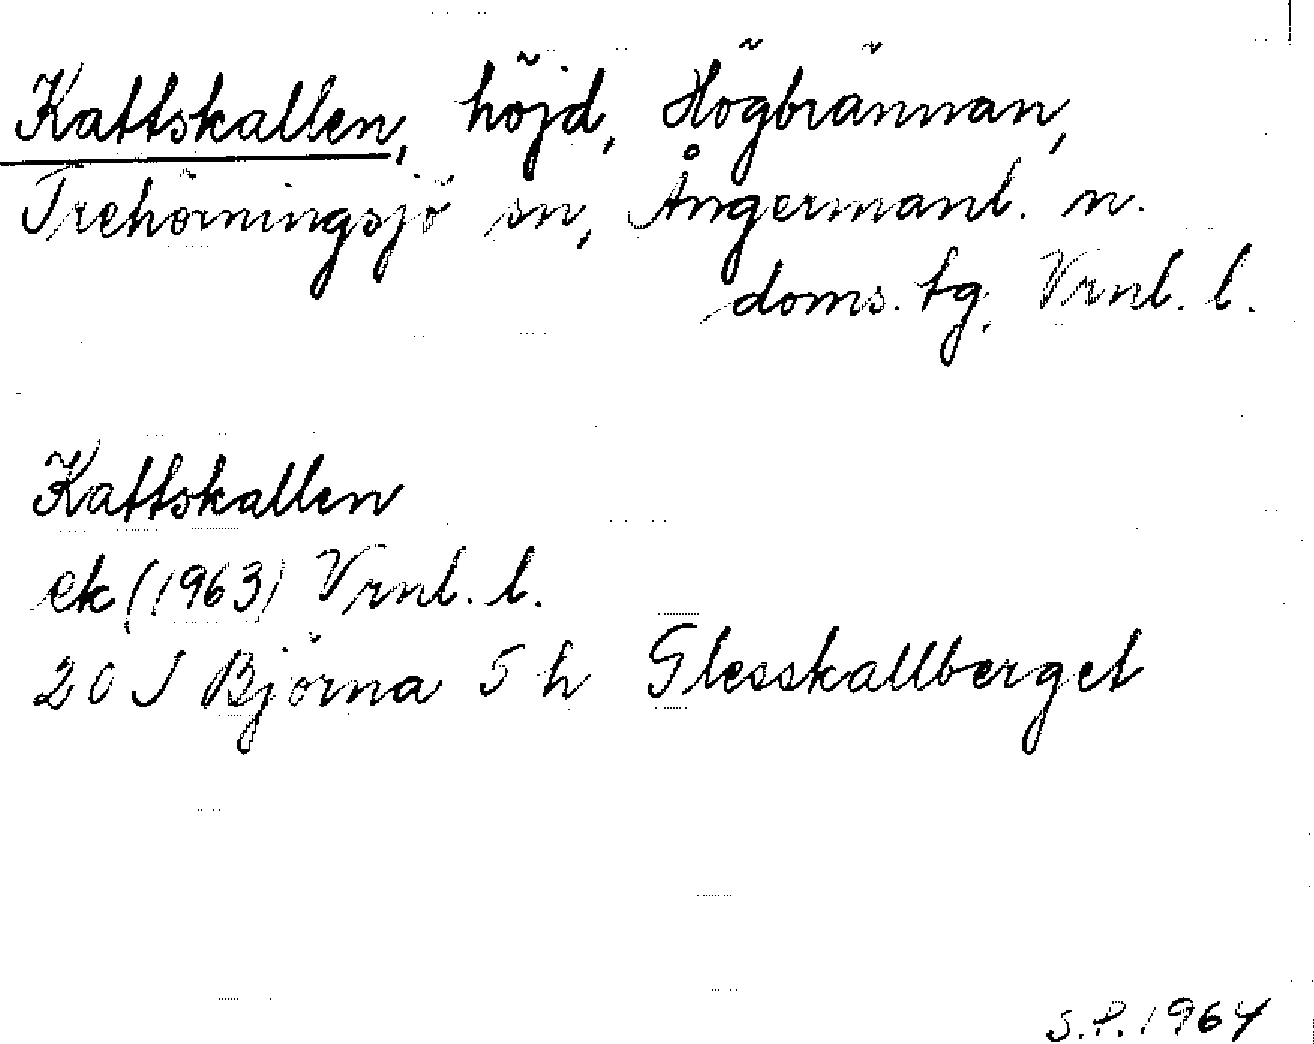 Kattskallen, höjd, Högbrännan,
Trehörningsjö sn, Ångermanl. n.
doms. tg, Vrnl. l.
Kattskallen
ek (1963) Vrnl. l.
20 J Björna 5 h Glesskallberget
S.P. 1964